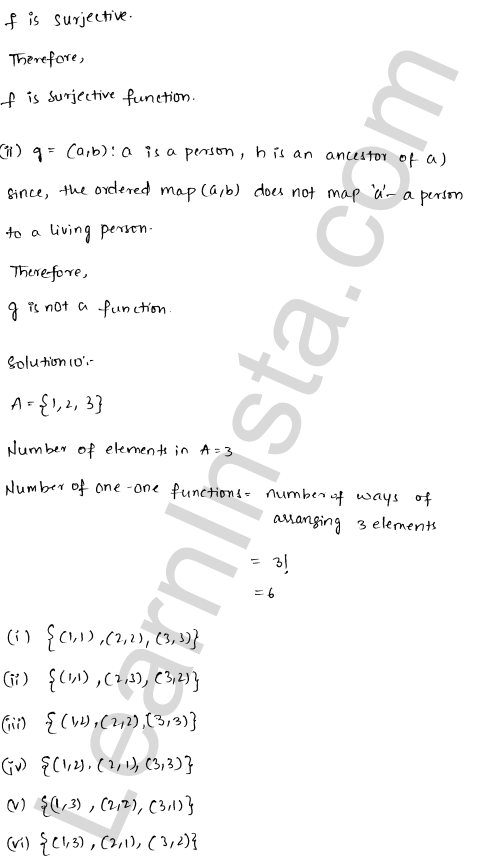 f is surjective.
Therefore,
f is surjective function.
(ii) g = (a,b): a is a person, h is an ancestor of a)
since, the ordered map (a,b) does not map 'a' - a person
to a living person.
Therefore,
g is not a function.
Solution 10:-
A = {1, 2, 3}
Number of elements in A = 3
Number of one-one functions = number of ways of
arranging 3 elements
= 3!
= 6
(i) {(1,1), (2,2), (3,3)}
(ii) {(1,1), (2,3), (3,2)}
(iii) {(1,2), (2,2), (3,3)}
(iv) {(1,2), (2,1), (3,3)}
(v) {(1,3), (2,2), (3,1)}
(vi) {(1,3), (2,1), (3,2)}
LearnInsta.com